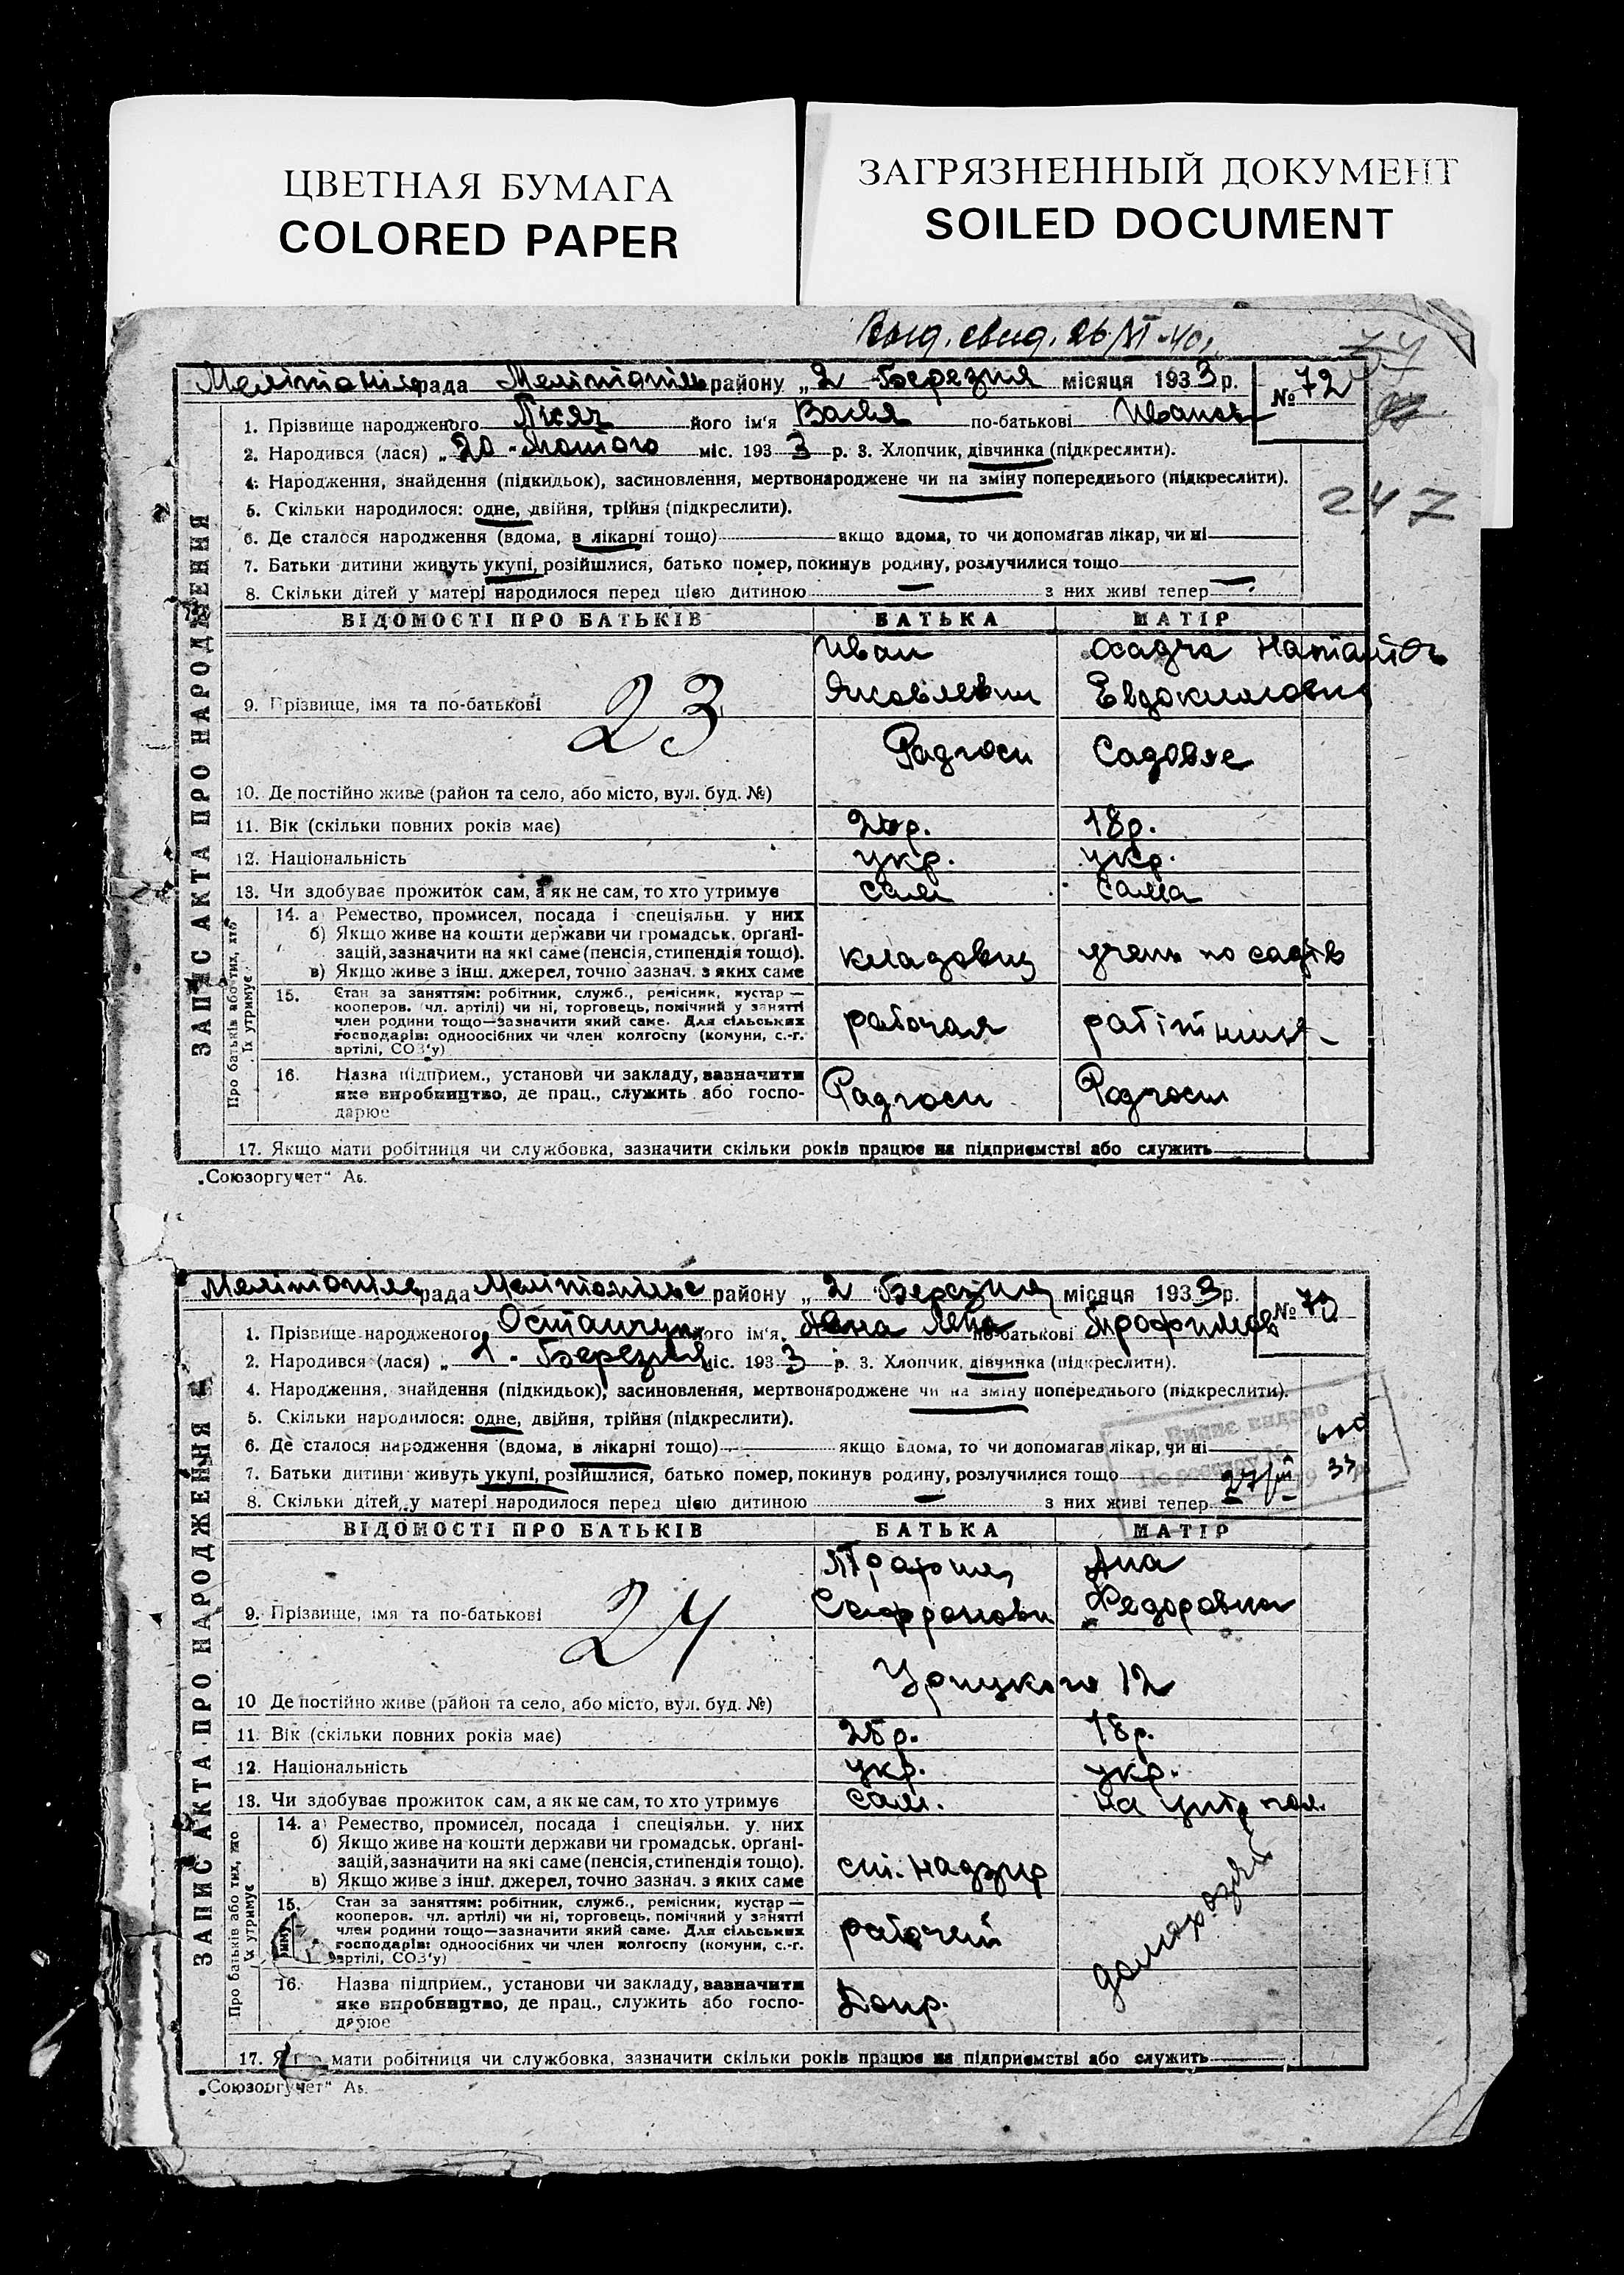 ЦВЕТНАЯ БУМАГА
COLORED PAPER
ЗАГРЯЗНЕННЫЙ ДОКУМЕНТ
SOILED DOCUMENT
Выд. свид. 26/VI-40.
247
ЗАПИС АКТА ПРО НАРОДЖЕННЯ
рада Мелітопіль району „2 Березня місяця 1933 р. № 72
1. Прізвище народженого його ім'я по-батькові Иванов
2. Народився (лася) „20 Лютого міс. 1933 р. 3. Хлопчик, дівчинка (підкреслити).
4. Народження, знайдення (підкидьок), засиновлення, мертвонароджене чи на зміну попереднього (підкреслити).
5. Скільки народилося: одне, двійня, трійня (підкреслити).
6. Де сталося народження (вдома, в лікарні тощо) якщо вдома, то чи допомагав лікар, чи ні —
7. Батьки дитини живуть укупі, розійшлися, батько помер, покинув родину, розлучилися тощо
8. Скільки дітей у матері народилося перед цією дитиною — з них живі тепер —
ВІДОМОСТІ ПРО БАТЬКІВ БАТЬКА МАТІР
Иван Осадча
9. Прізвище, імя та по-батькові 23 Яковлевич Евдокимовна
Радгосп Садовое
10. Де постійно живе (район та село, або місто, вул. буд. №)
11. Вік (скільки повних років має) 18р.
12. Національність укр. укр.
13. Чи здобуває прожиток сам, а як не сам, то хто утримує сам сама
Про батьків або тих, хто їх утримує
14. а) Ремество, промисел, посада і спеціяльн. у них
б) Якщо живе на кошти держави чи громадськ. органі-
зацій, зазначити на які саме (пенсія, стипендія тощо).
в) Якщо живе з інш. джерел, точно зазнач. з яких саме
кладовщ учень по садів
15. Стан за заняттям: робітник, служб., ремісник, кустар —
кооперов. чл. артілі) чи ні, торговець, помічний у занятті
член родини тощо—зазначити який саме. Для сільських
господарів: одноосібних чи член колгоспу (комуни, с.-г.
артілі, СОЗ'у)
рабочая робітниця
16. Назва підприєм., установи чи закладу, зазначити
яке виробництво, де прац., служить або госпо-
дарює
Радгосп Радгосп
17. Якщо мати робітниця чи службовка, зазначити скільки років працює на підприємстві або служить
„Союзоргучет“
ЗАПИС АКТА ПРО НАРОДЖЕННЯ
рада Мелітопільс району „2 Березня місяця 1933 р. № 73
1. Прізвище народженого Остапчук його ім'я по-батькові Трофимов
2. Народився (лася) „1 Березня міс. 1933 р. 3. Хлопчик, дівчинка (підкреслити).
4. Народження, знайдення (підкидьок), засиновлення, мертвонароджене чи на зміну попереднього (підкреслити).
5. Скільки народилося: одне, двійня, трійня (підкреслити).
6. Де сталося народження (вдома, в лікарні тощо) якщо вдома, то чи допомагав лікар, чи ні
7. Батьки дитини живуть укупі, розійшлися, батько помер, покинув родину, розлучилися тощо
8. Скільки дітей у матері народилося перед цією дитиною — з них живі тепер —
27/III 33
ВІДОМОСТІ ПРО БАТЬКІВ БАТЬКА МАТІР
Трофим Ана
9. Прізвище, імя та по-батькові 24 Федоровна
Урицкого 12
10 Де постійно живе (район та село, або місто, вул. буд. №)
11. Вік (скільки повних років має) 25р. 18р.
12. Національність укр. укр.
13. Чи здобуває прожиток сам, а як не сам, то хто утримує сам. на
Про батьків або тих, хто їх утримує
14. а) Ремество, промисел, посада і спеціяльн. у них
б) Якщо живе на кошти держави чи громадськ. органі-
зацій, зазначити на які саме (пенсія, стипендія тощо).
в) Якщо живе з інш. джерел, точно зазнач. з яких саме
ст. надзир
15. Стан за заняттям: робітник, служб., ремісник, кустар —
кооперов. чл. артілі) чи ні, торговець, помічний у занятті
член родини тощо—зазначити який саме. Для сільських
господарів: одноосібних чи член колгоспу (комуни, с.-г.
артілі, СОЗ'у)
рабочий
16. Назва підприєм., установи чи закладу, зазначити
яке виробництво, де прац., служить або госпо-
дарює
17. мати робітниця чи службовка, зазначити скільки років працює на підприємстві або служить
„Союзоргучет“